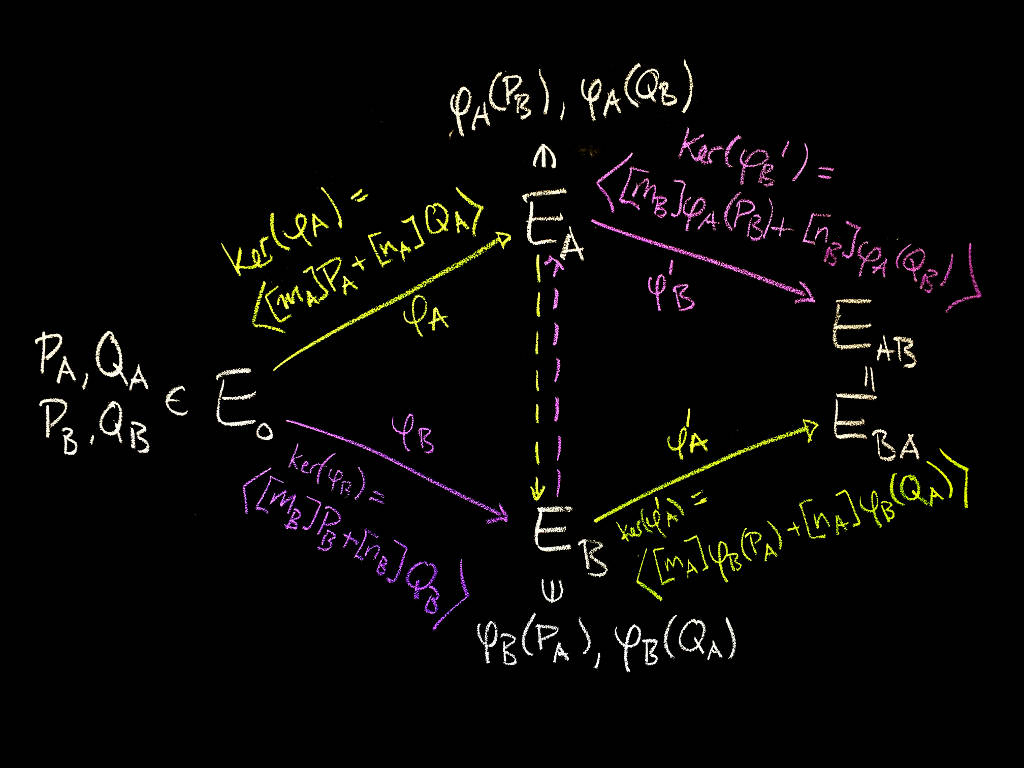 φA(PB), φA(QB)
ker(φB') =
⟨[mB]φA(PB) + [nB]φA(QB)⟩
ker(φA) =
⟨[mA]PA + [nA]QA⟩
EA
φA
φ'B
EAB
=
EBA
PA, QA
PB, QB
∈ E0
φB
φ'A
ker(φB) =
⟨[mB]PB + [nB]QB⟩
EB
ker(φ'A) =
⟨[mA]φB(PA) + [nA]φB(QA)⟩
φB(PA), φB(QA)